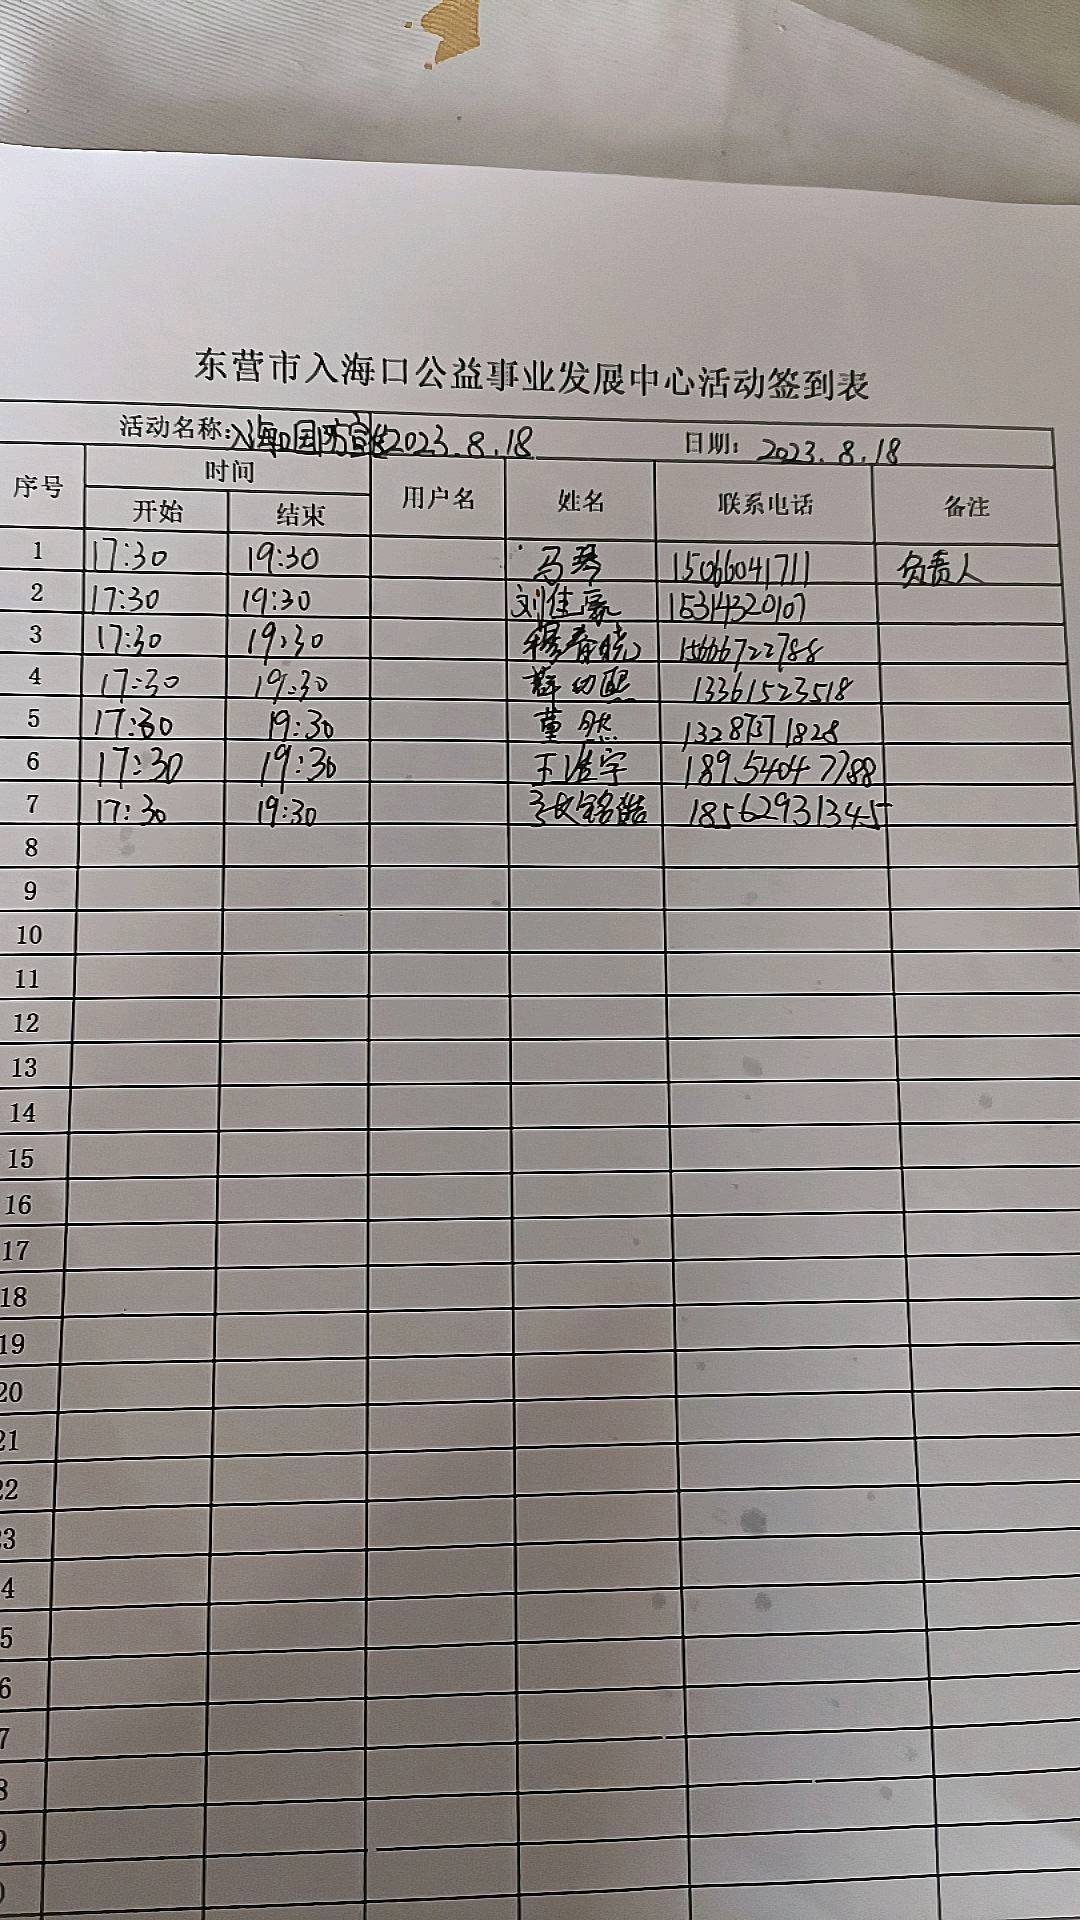 东营市入海口公益事业发展中心活动签到表
活动名称:入海口国防宣传2023.8.18 日期: 2023.8.18
序号 时间 用户名 姓名 联系电话 备注
开始 结束
1 17:30 19:30 马琴 15066041711 负责人
2 17:30 19:30 刘佳豪 15314320107
3 17:30 19:30 穆春晓 15606722788
4 17:30 19:30 13361523518
5 17:30 19:30 董然 1828
6 17:30 19:30 王浩宇 18954047788
7 17:30 19:30 张铭皓 18562931345
8
9
10
11
12
13
14
15
16
17
18
19
20
21
22
23
4
5
6
7
8
9
0